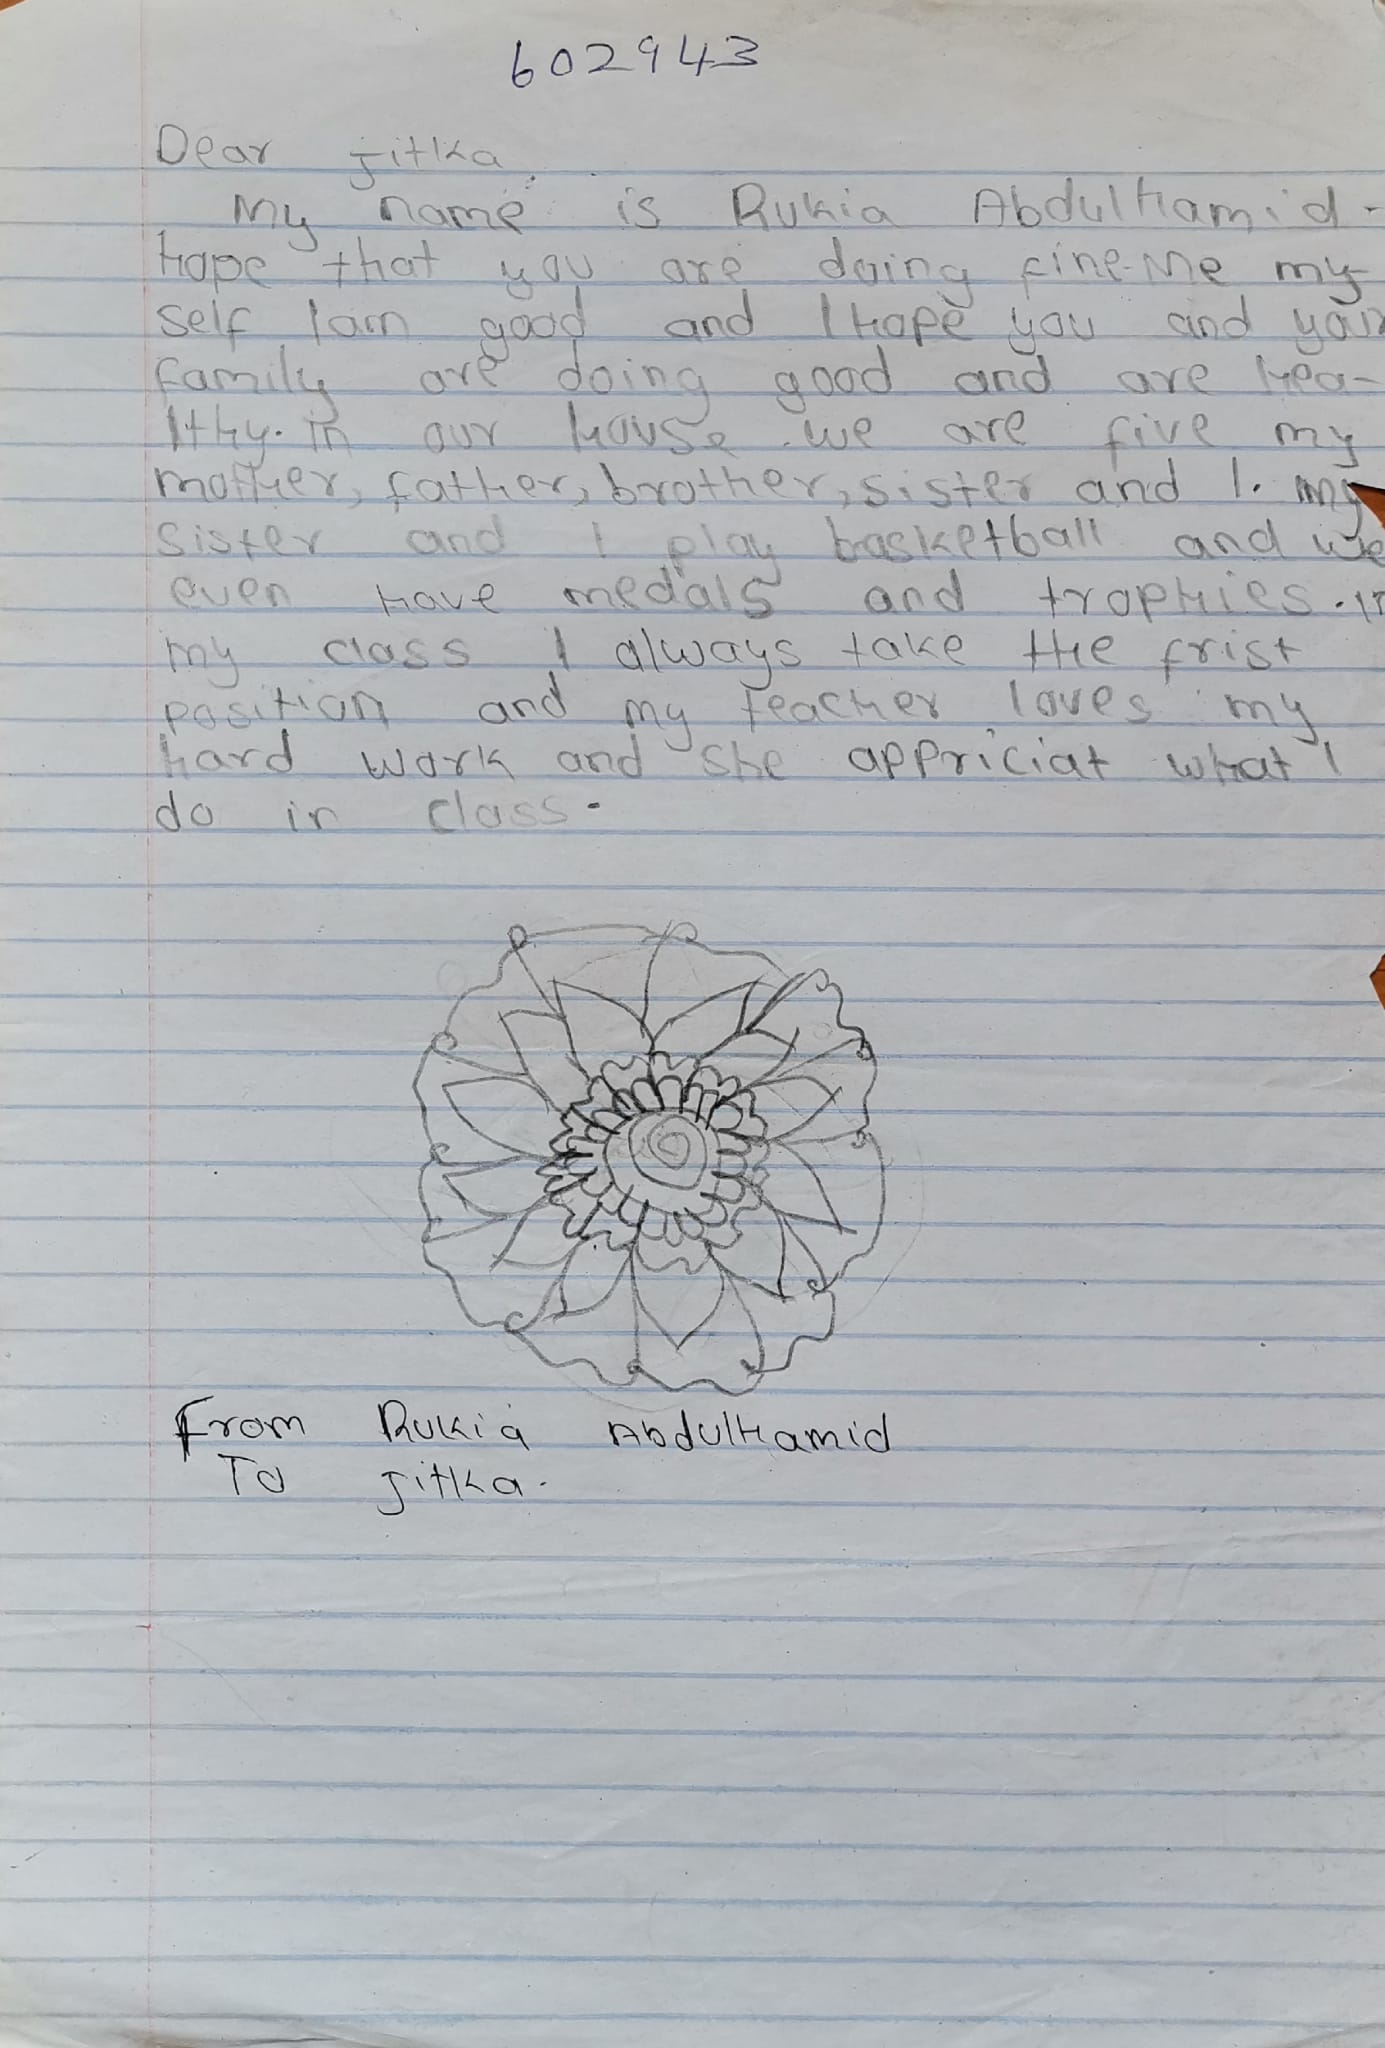 602943
Dear jitka,
My name is Rukia Abdulhamid.
hope that you are doing fine. Me my
self I am good and I hope you and your
family are doing good and are hea-
lthy. in our house we are five my
mother, father, brother, sister and I. my
sister and I play basketball and we
even have medals and trophies. in
my class I always take the frist
position and my teacher loves my
hard work and she appriciat what I
do in class.
From Rukia Abdulhamid
To jitka.